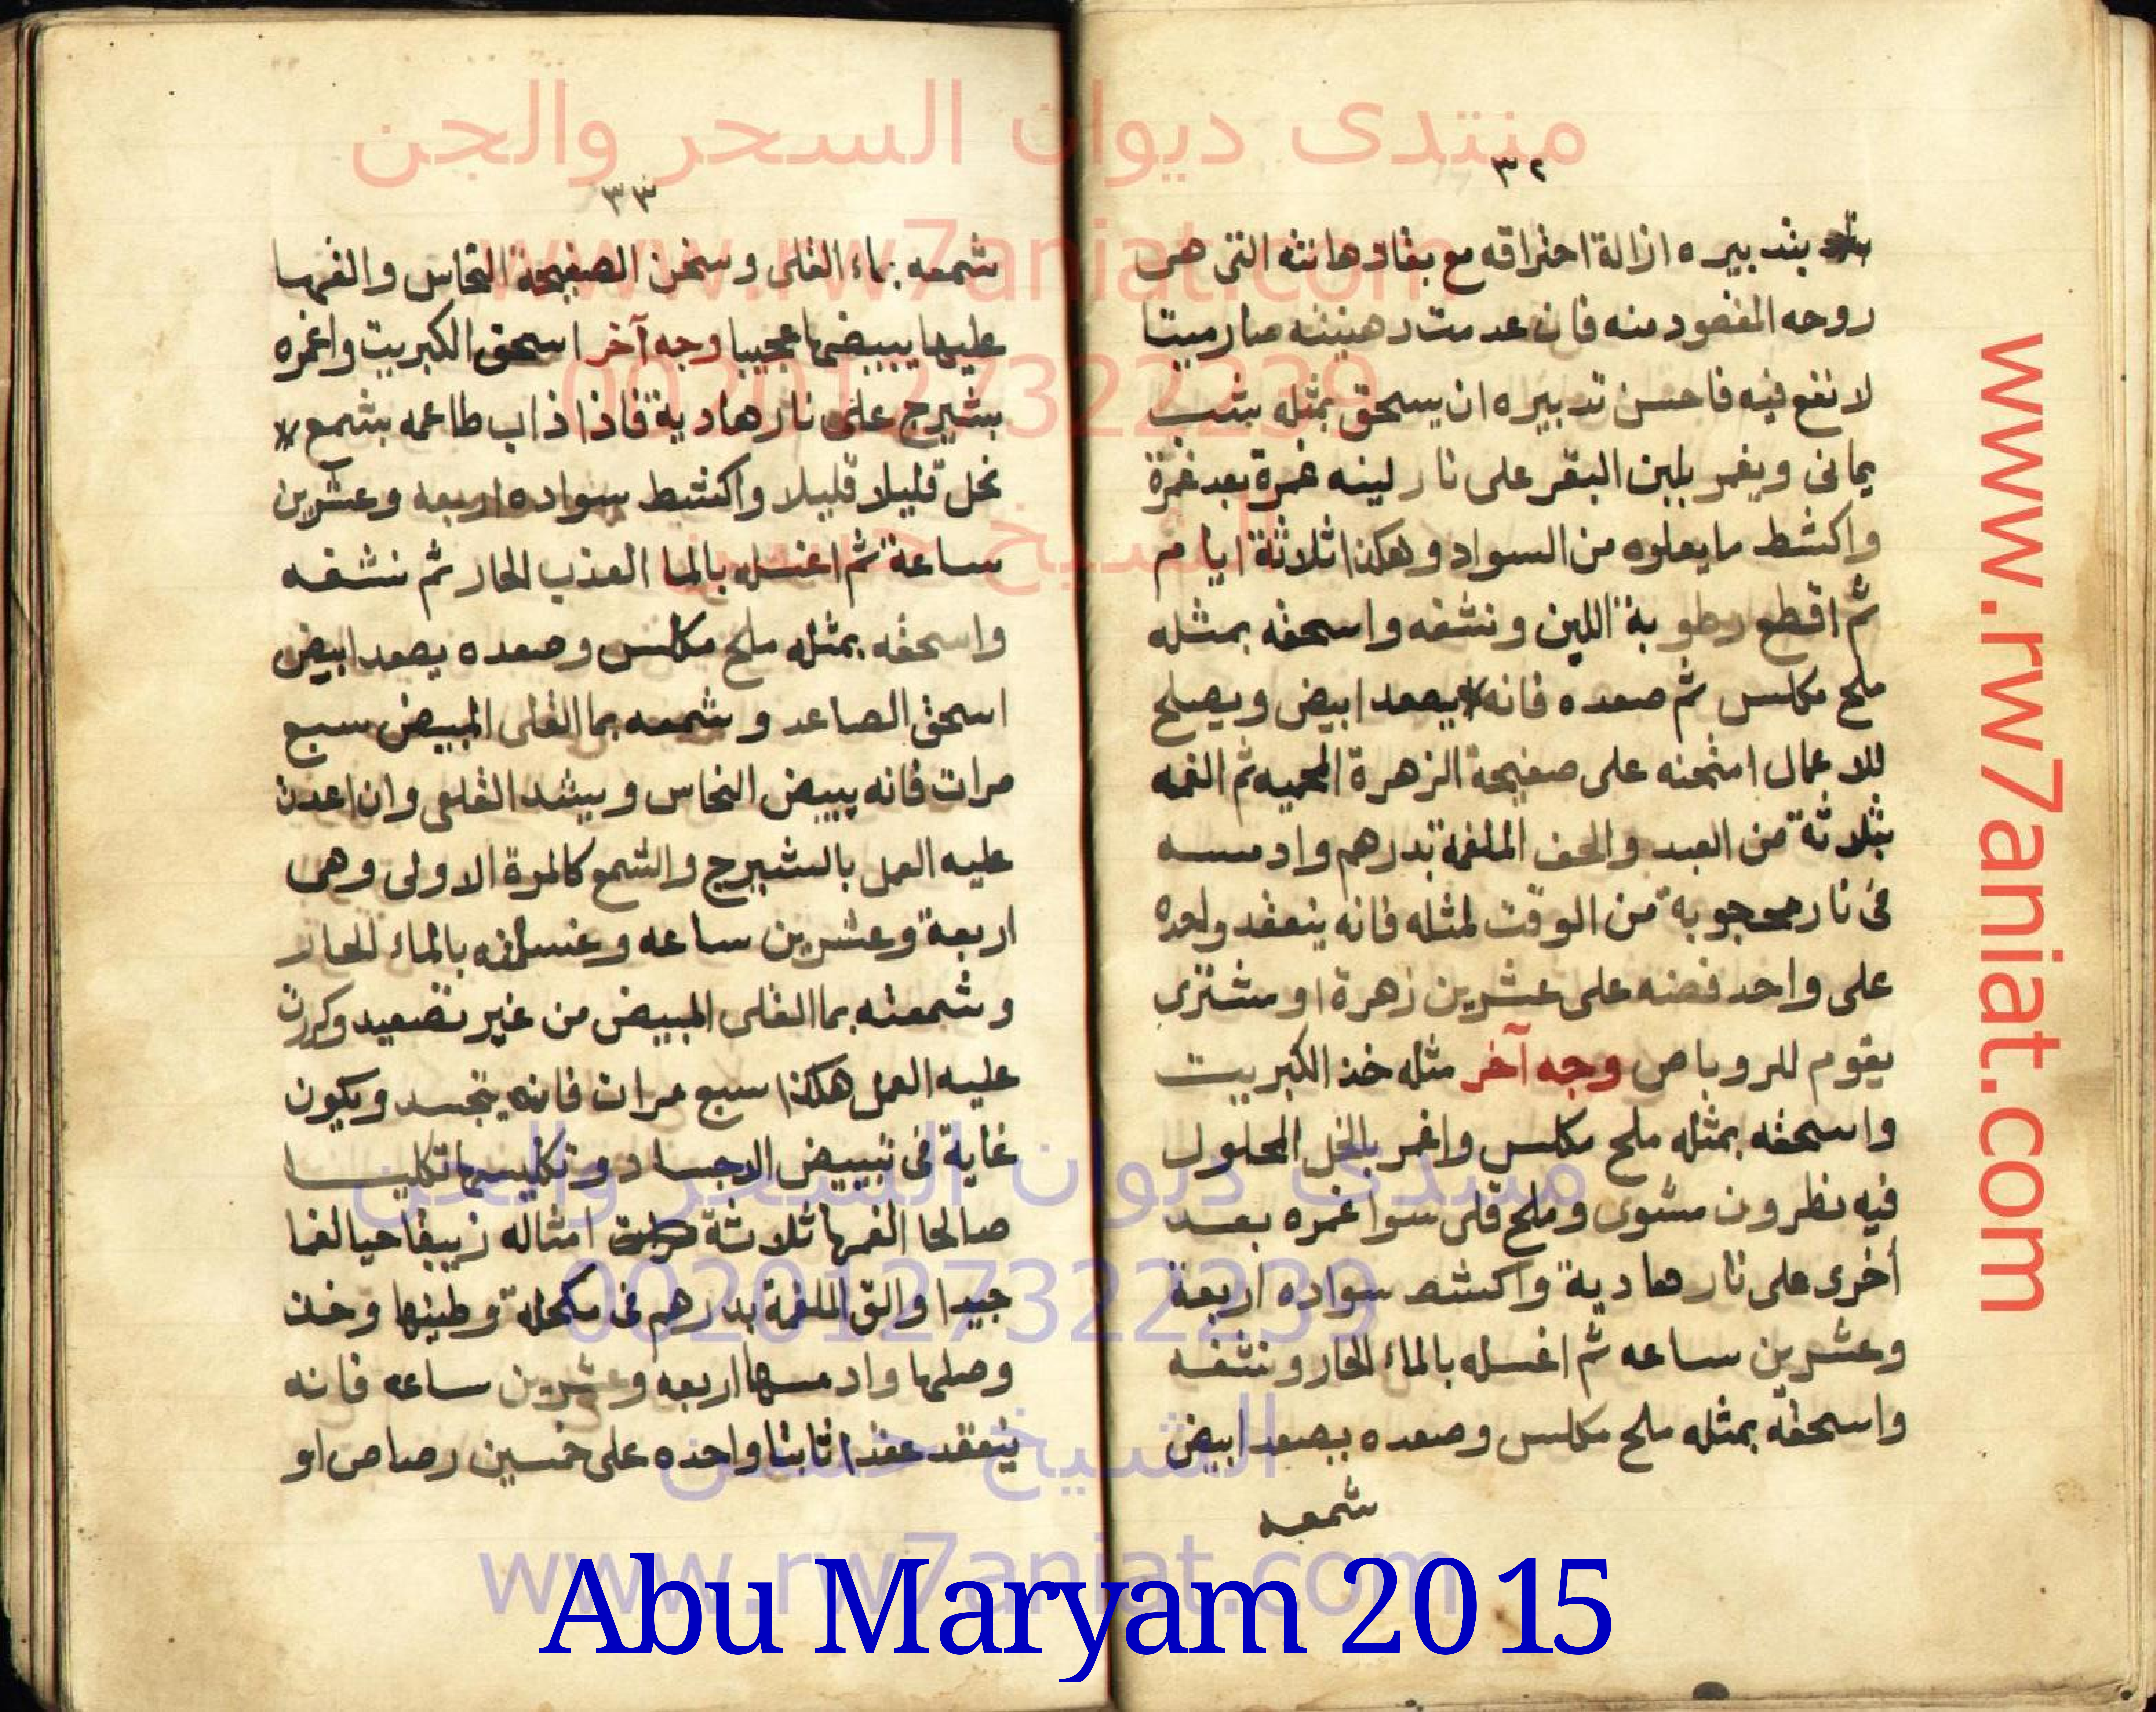 منتدى ديوان السحر والجن
www.rw7aniat.com
00201127322239
الشيخ حسن
www.rw7aniat.com
٣٢
بتدبيره ازالة احتراقه مع بقاء دهانته التى هى
روحه المقصود منه فان عدمت دهنيته صار ميتا
لا نفع فيه فاحسن تدبيره ان يسحق بمثله شب
يمانى ويغمر بلبن البقر على نار لينه غمرة بعد غمرة
واكشط ما يعلوه من السواد وهكذا ثلاثة ايام
ثم اقطع رطوبة اللبن ونشفه واسحقه بمثله
ملح مكلس ثم صعده فانه يصعد ابيض ويصلح
للاعمال امتحنه على صفيحة الزهرة المحميه ثم القمه
بثلاثة من العبد والق الملغمة بدرهم وادمسه
فى نار محجوبة من الوقت لمثله فانه ينعقد واحده
على واحد فضه على عشرين زهرة او مشترى
يقوم للروباص وجه آخر مثله خذ الكبريت
واسحقه بمثله ملح مكلس واغمر بالخل المحلول
فيه نطرون مشوى وملح قلى سوا غمره بعد
أخرى على نار هادية واكشط سواده اربعة
وعشرين ساعه ثم اغسله بالماء الحار ونشفه
واسحقه بمثله ملح مكلس وصعده يصعد ابيض
شمعه
٣٣
شمعه بماء القلى وسخن الصفيحة النحاس والقهـا
عليها يبيضها عجيبا وجه آخر اسحق الكبريت واغمره
بشيرج على نار هادية فاذا ذاب طاعمه بشمع
نحل قليلا قليلا واكشط سواده اربعه وعشرين
ساعة ثم اغسله بالما العذب الحار ثم نشفه
واسحقه بمثله ملح مكلس وصعده يصعد ابيض
اسحق الصاعد وشمعه بما القلى المبيض سبع
مرات فانه يبيض النحاس ويشد القلعى وان اعدت
عليه العمل بالشيرج والشمع كالمرة الاولى وهى
اربعة وعشرين ساعه وغسلته بالماء الحار
وشمعته بما القلى المبيض من غير تصعيد وكررت
عليه العمل هكذا سبع مرات فانه يتجسد ويكون
غاية فى تبييض الاجساد وتكليسها تكليسا
صالحا القمها ثلاثة امثاله زيبقا حيا لغما
جيدا والق الملغمة بدرهم فى مكحلة وطينها وخت
وصلها وادمسها اربعه وعشرين ساعه فانه
ينعقد عقدا ثابتا واحده على خمسين رصاص او
منتدى ديوان السحر والجن
00201127322239
الشيخ حسن
www.rw7aniat.com
Abu Maryam 2015